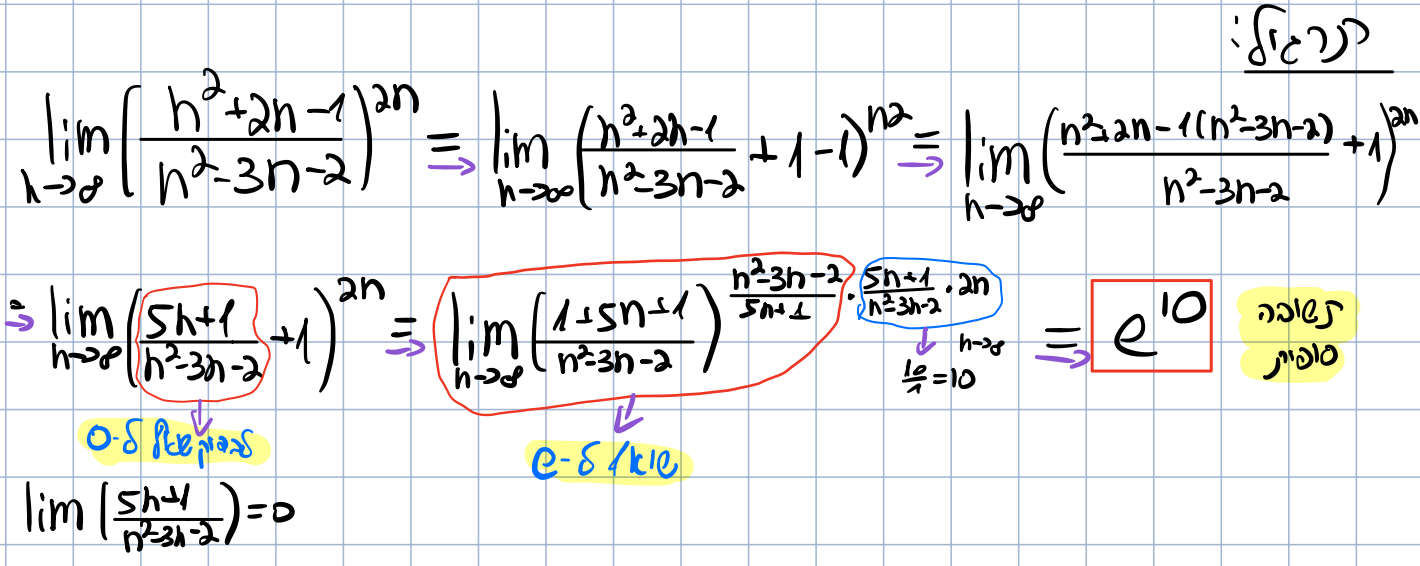 תרגיל:
lim n→∞ ( (n²+2n−1)/(n²−3n−2) )^2n = lim n→∞ ( (n²+2n−1)/(n²−3n−2) + 1 − 1 )^n2 = lim n→∞ ( (n²+2n−1(n²−3n−2))/(n²−3n−2) + 1 )^2n
= lim n→∞ ( (5n+1)/(n²−3n−2) + 1 )^2n = lim n→∞ ( (1+5n+1)/(n²−3n−2) )^( (n²−3n−2)/(5n+1) · (5n+1)/(n²−3n−2) · 2n ) = e^10 תשובה סופית
n→∞
10/1 = 10
לבדוק שואף ל-0
שואף ל-e
lim ( (5n+1)/(n²−3n−2) ) = 0